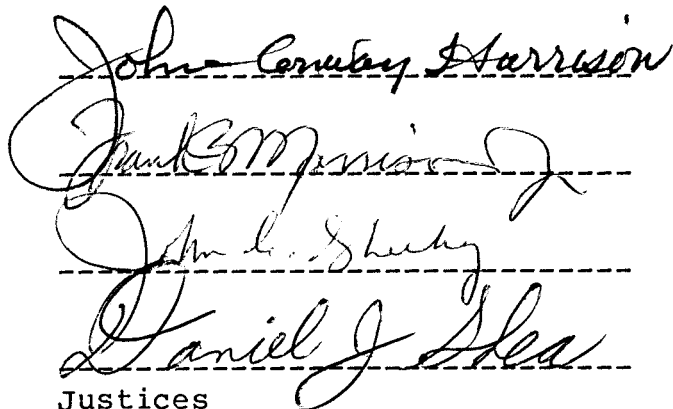 John Conway Harrison
Frank B Morrison Jr
John C. Sheehy
Daniel J Shea
Justices